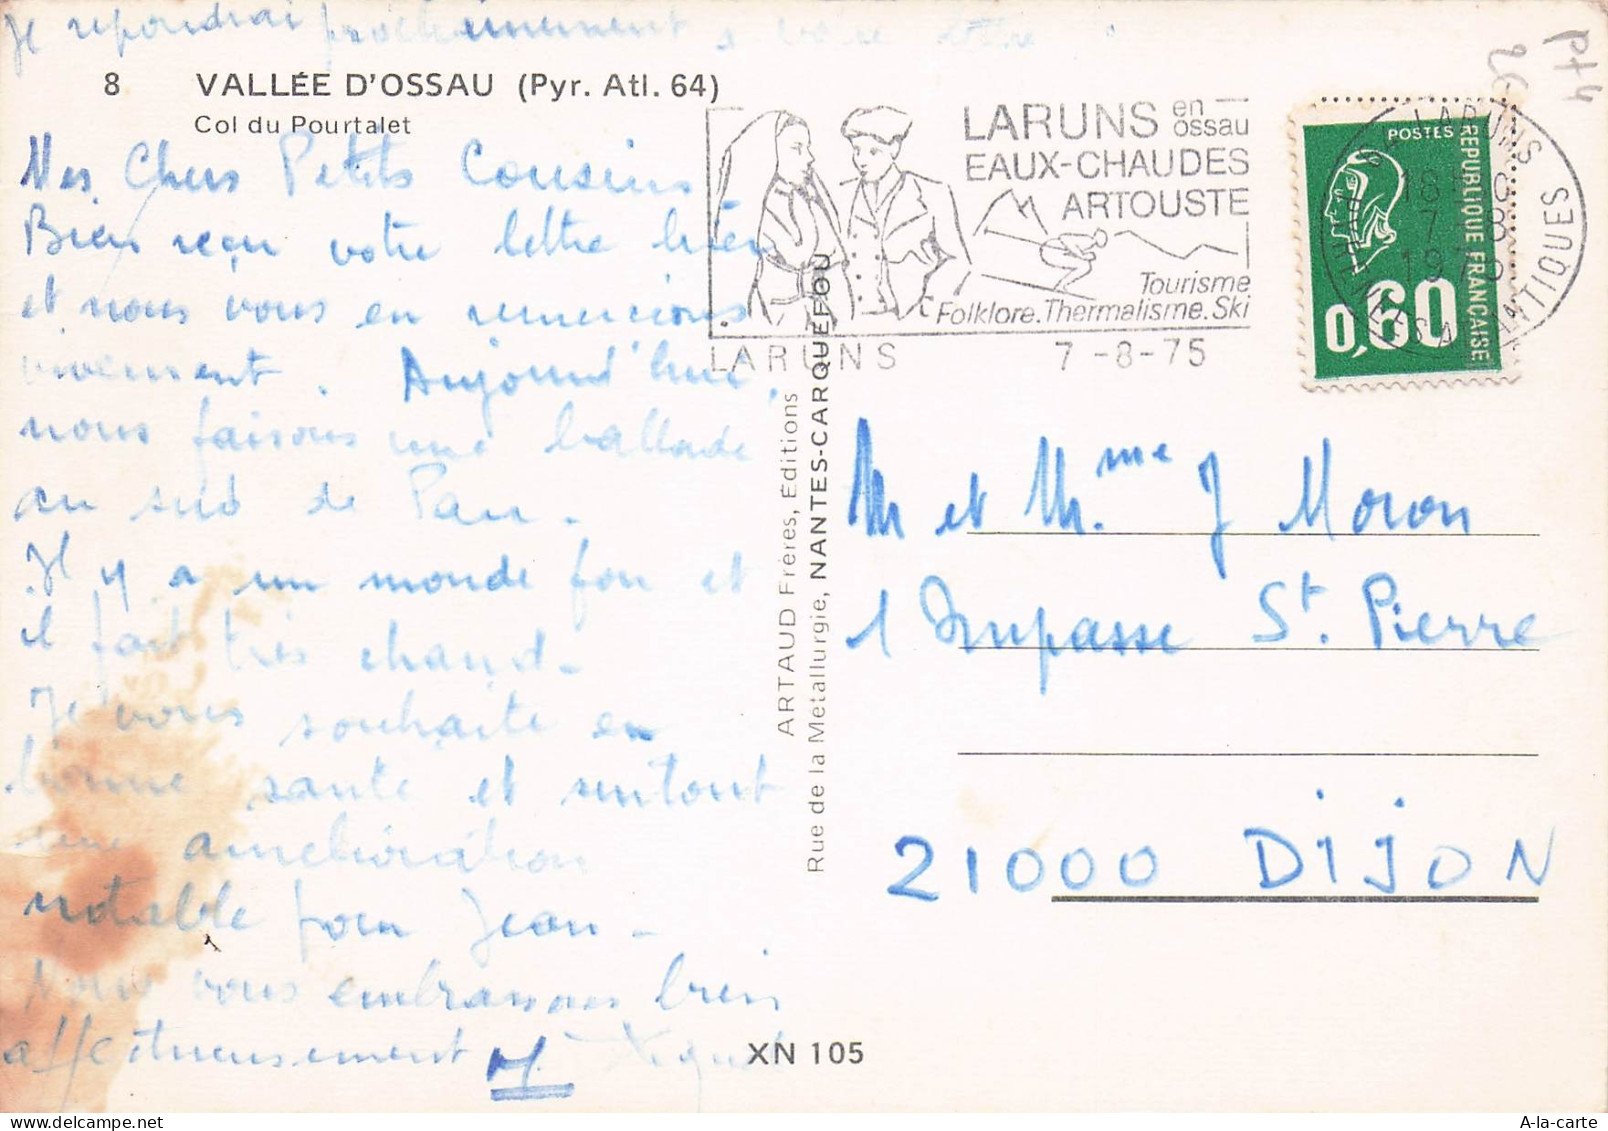 Je repondrai prochainement a votre lettre
8 VALLÉE D'OSSAU (Pyr. Atl. 64)
Col du Pourtalet
Mes Chers Petits Cousins
Bien reçu votre lettre hier
et nous vous en remercions
vivement. Aujourd'hui,
nous faisons une ballade
au sud de Pau.
Il y a un monde fou et
il fait très chaud.
Je vous souhaite en
bonne santé et surtout
une amélioration
notable pour Jean -
Nous vous embrassons bien
affectueusement
ARTAUD Frères, Éditions
Rue de la Métallurgie, NANTES-CARQUEFOU
XN 105
LARUNS en ossau
EAUX-CHAUDES
ARTOUSTE
Tourisme
Folklore.Thermalisme.Ski
LARUNS 7-8-75
POSTES
REPUBLIQUE FRANÇAISE
0,60
LARUNS
PYRENEES ATLANTIQUES
18H
7 - 8
1975
M et Mme J Moron
1 Impasse St. Pierre
21000 DIJON
A-la-carte